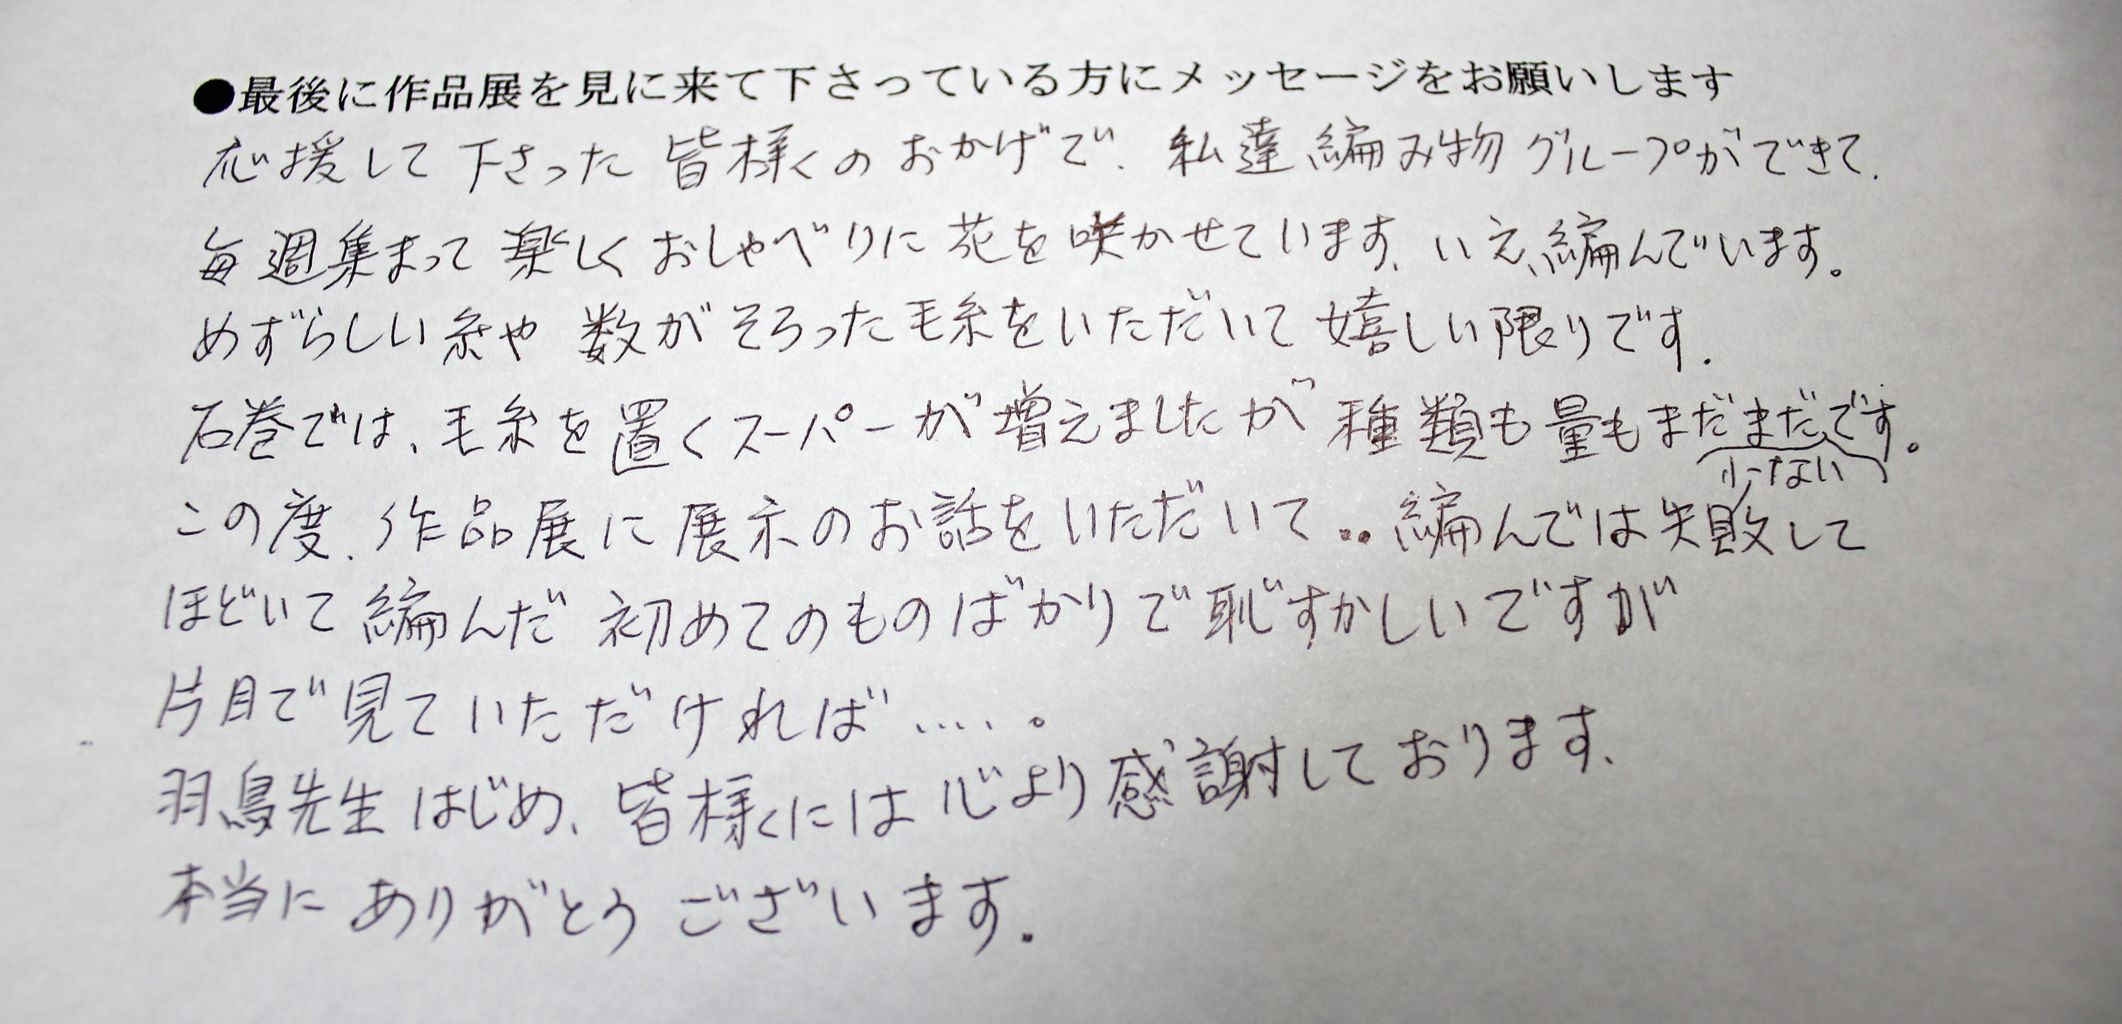 ●最後に作品展を見に来て下さっている方にメッセージをお願いします
応援して下さった皆様々のおかげで、私達編み物グループができて、
毎週集まって楽しくおしゃべりに花を咲かせています、いえ、編んでいます。
めずらしい糸や数がそろった毛糸をいただいて嬉しい限りです.
石巻では、毛糸を置くスーパーが増えましたが種類も量もまだまだです。
少ない
この度、作品展に展示のお話をいただいて‥編んでは失敗して
ほどいて編んだ初めてのものばかりで恥ずかしいですが
片目で見ていただければ‥‥。
羽鳥先生はじめ、皆様々には心より感謝しております、
本当にありがとうございます.